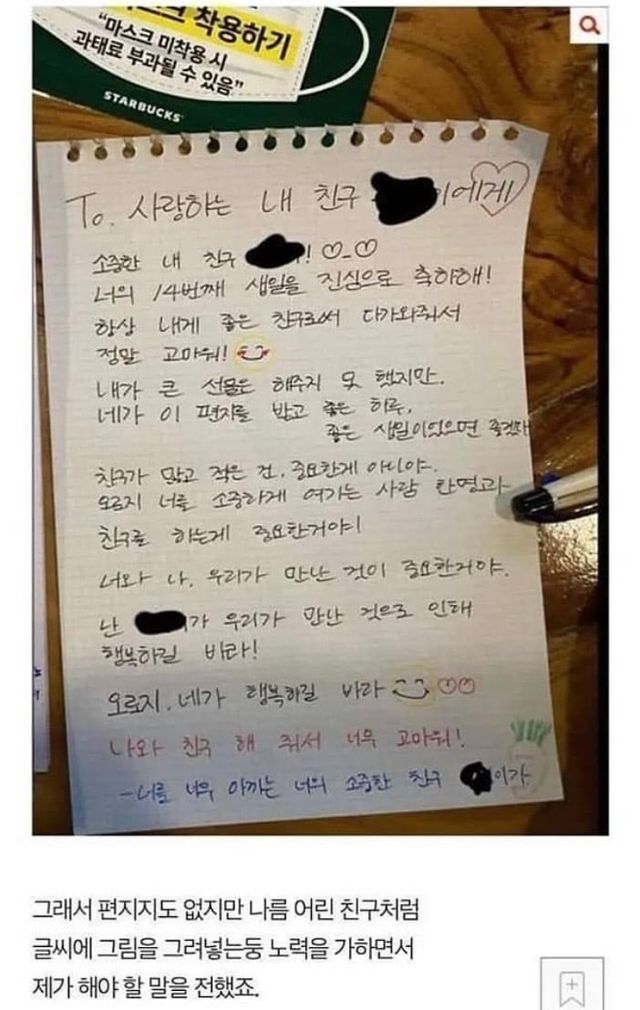 마스크 착용하기
“마스크 미착용 시
과태료 부과될 수 있음”
STARBUCKS
To. 사랑하는 내 친구 이에게
소중한 내 친구 ! ♡_♡
너의 14번째 생일을 진심으로 축하해!
항상 내게 좋은 친구로써 다가와줘서
정말 고마워!
내가 큰 선물은 해주지 못 했지만.
네가 이 편지를 받고 좋은 하루,
좋은 생일이었으면 좋겠다
친구가 많고 적은 건, 중요한게 아니야.
오로지 너를 소중하게 여기는 사람 한명과
친구를 하는게 중요한거야!
너와 나, 우리가 만난 것이 중요한거야.
난 가 우리가 만난 것으로 인해
행복하길 바라!
오로지, 네가 행복하길 바라 ♡♡
나와 친구 해 줘서 너무 고마워!
-너를 너무 아끼는 너의 소중한 친구 이가
그래서 편지지도 없지만 나름 어린 친구처럼
글씨에 그림을 그려넣는둥 노력을 가하면서
제가 해야 할 말을 전했죠.